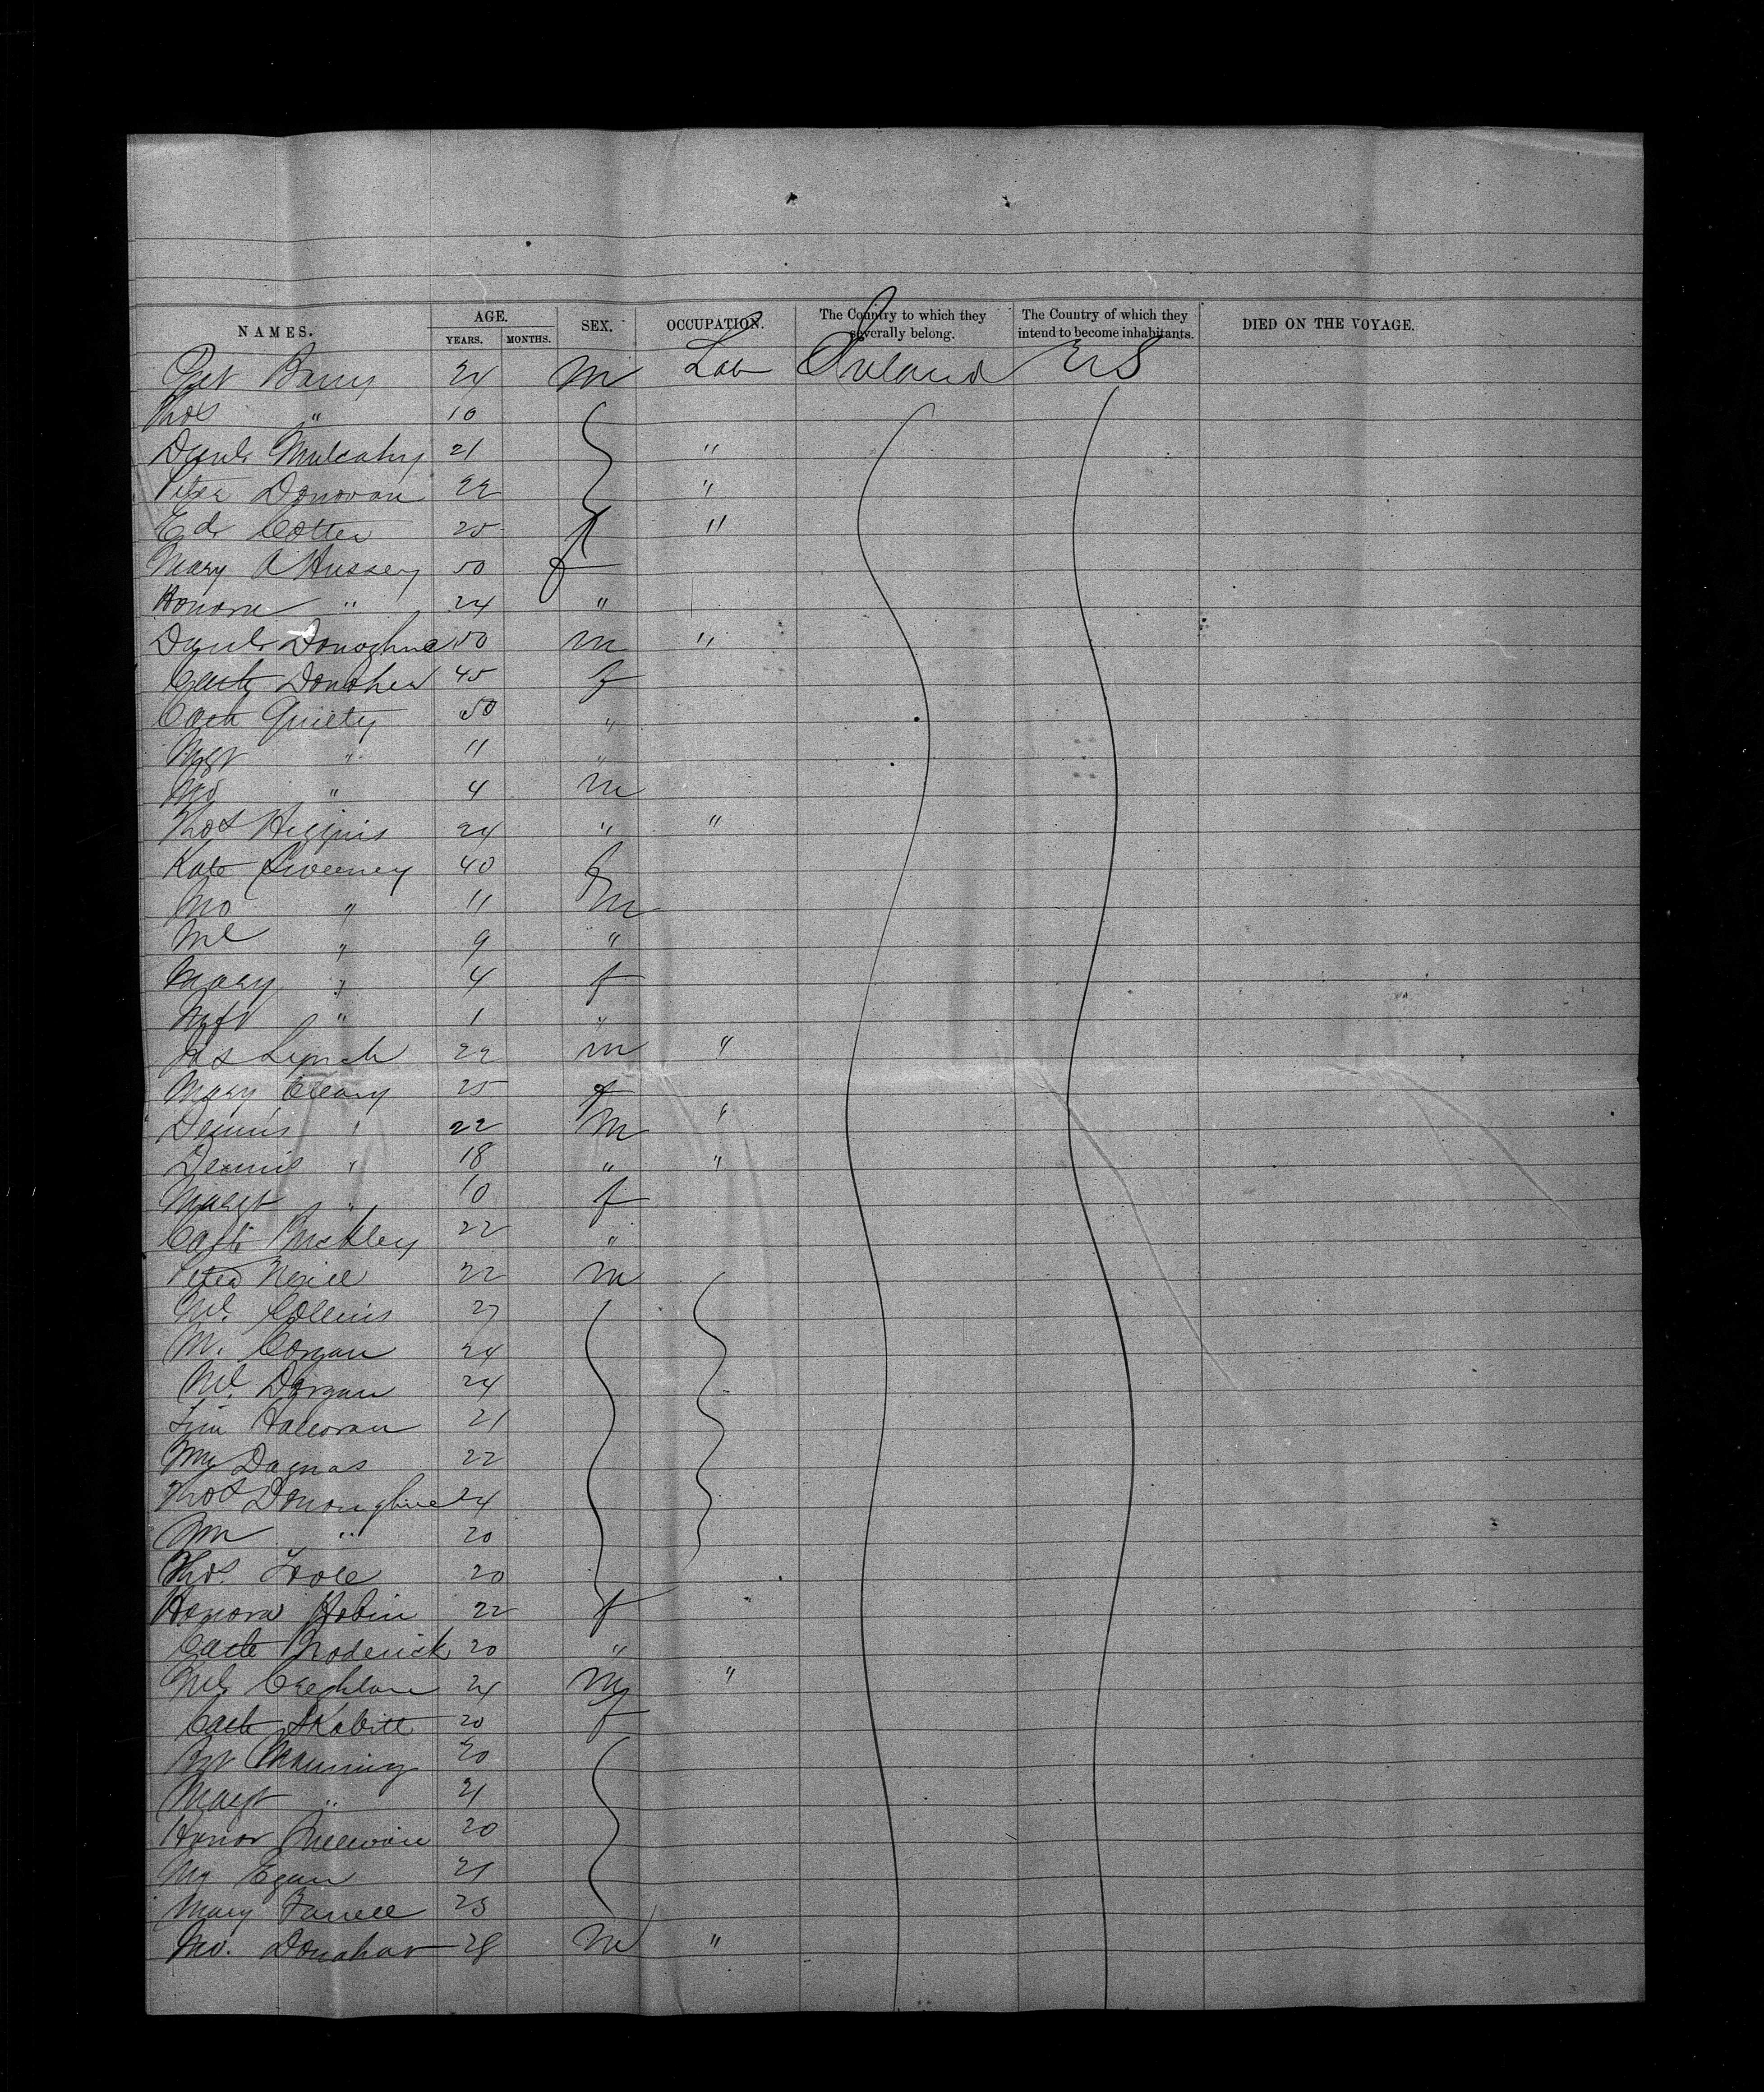 NAMES. AGE. YEARS. MONTHS. SEX. OCCUPATION. The Country to which they severally belong. The Country of which they intend to become inhabitants. DIED ON THE VOYAGE.
Pat Barry 24 m Lab Ireland US
Thos " 10
Danl. Mulcahy 21 "
Peter Donovan 22 "
Ed. Cotter 25 "
Mary A Hussey 50 f
Honora " 24 "
Danl. Donoghue 50 m "
Cath Donohue 45 f
Cath Quilty 50 "
Mgt " 11 "
Jno " 4 m
Thos Higgins 24 " "
Kate Sweeney 40 f
Jno " 11 m
Ml " 9 "
Mary " 4 f
Mgt " 1 "
Jas Lynch 22 m "
Mary Cleary 25 f
Dennis " 22 m "
Dennis " 18 " "
Margt " 10 f
Cath Buckley 22 "
Peter Neill 22 m
Ml. Collins 27
M. Corgan 24
Ml. Dargan 24
Tim Halloran 21
Wm 22
Thos Donoughue 24
Wm " 20
Thos. Toole 20
Honora Hobin 22 f
Cath Broderick 20 "
Ml. Creghlan 24 m "
Cath 20 f
Bgt Manning 20
Margt " 21
Honor 20
Egan 21
Mary Farrell 23
Jno. Donahar 28 m "